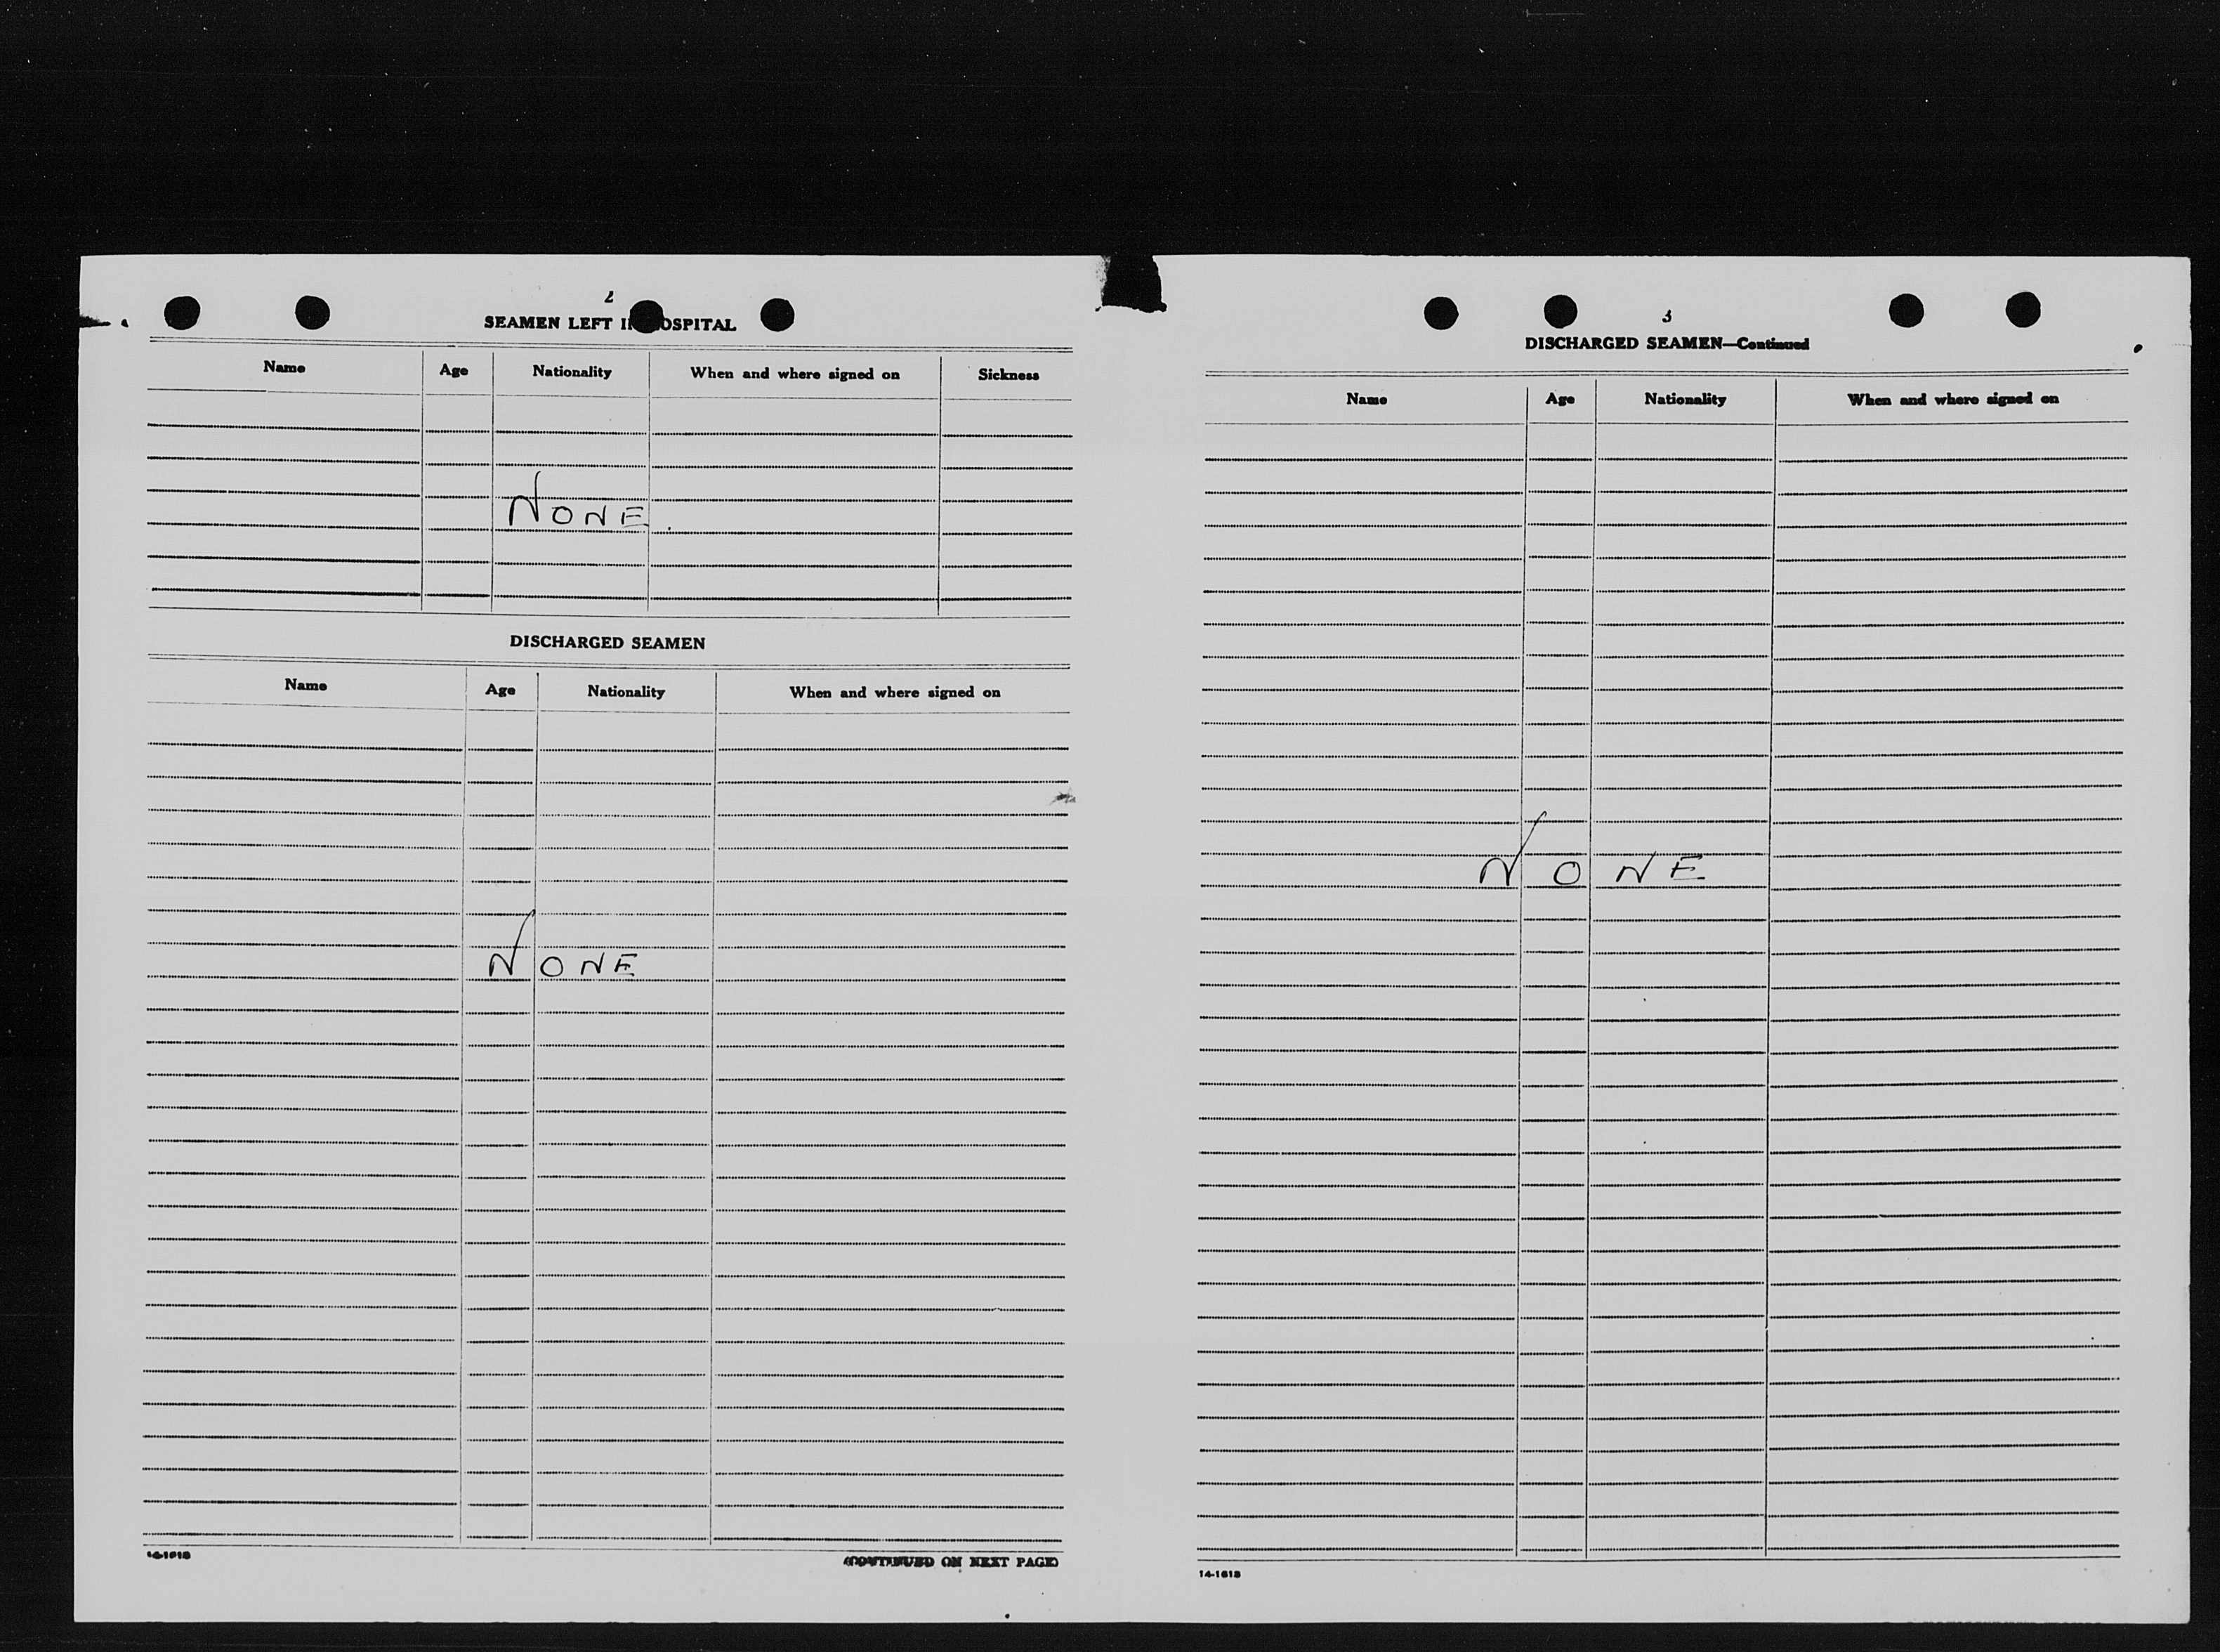 2
SEAMEN LEFT IN HOSPITAL
Name Age Nationality When and where signed on Sickness
NONE
DISCHARGED SEAMEN
Name Age Nationality When and where signed on
NONE
14-1618
(CONTINUED ON NEXT PAGE)
3
DISCHARGED SEAMEN—Continued
Name Age Nationality When and where signed on
NONE
14-1618